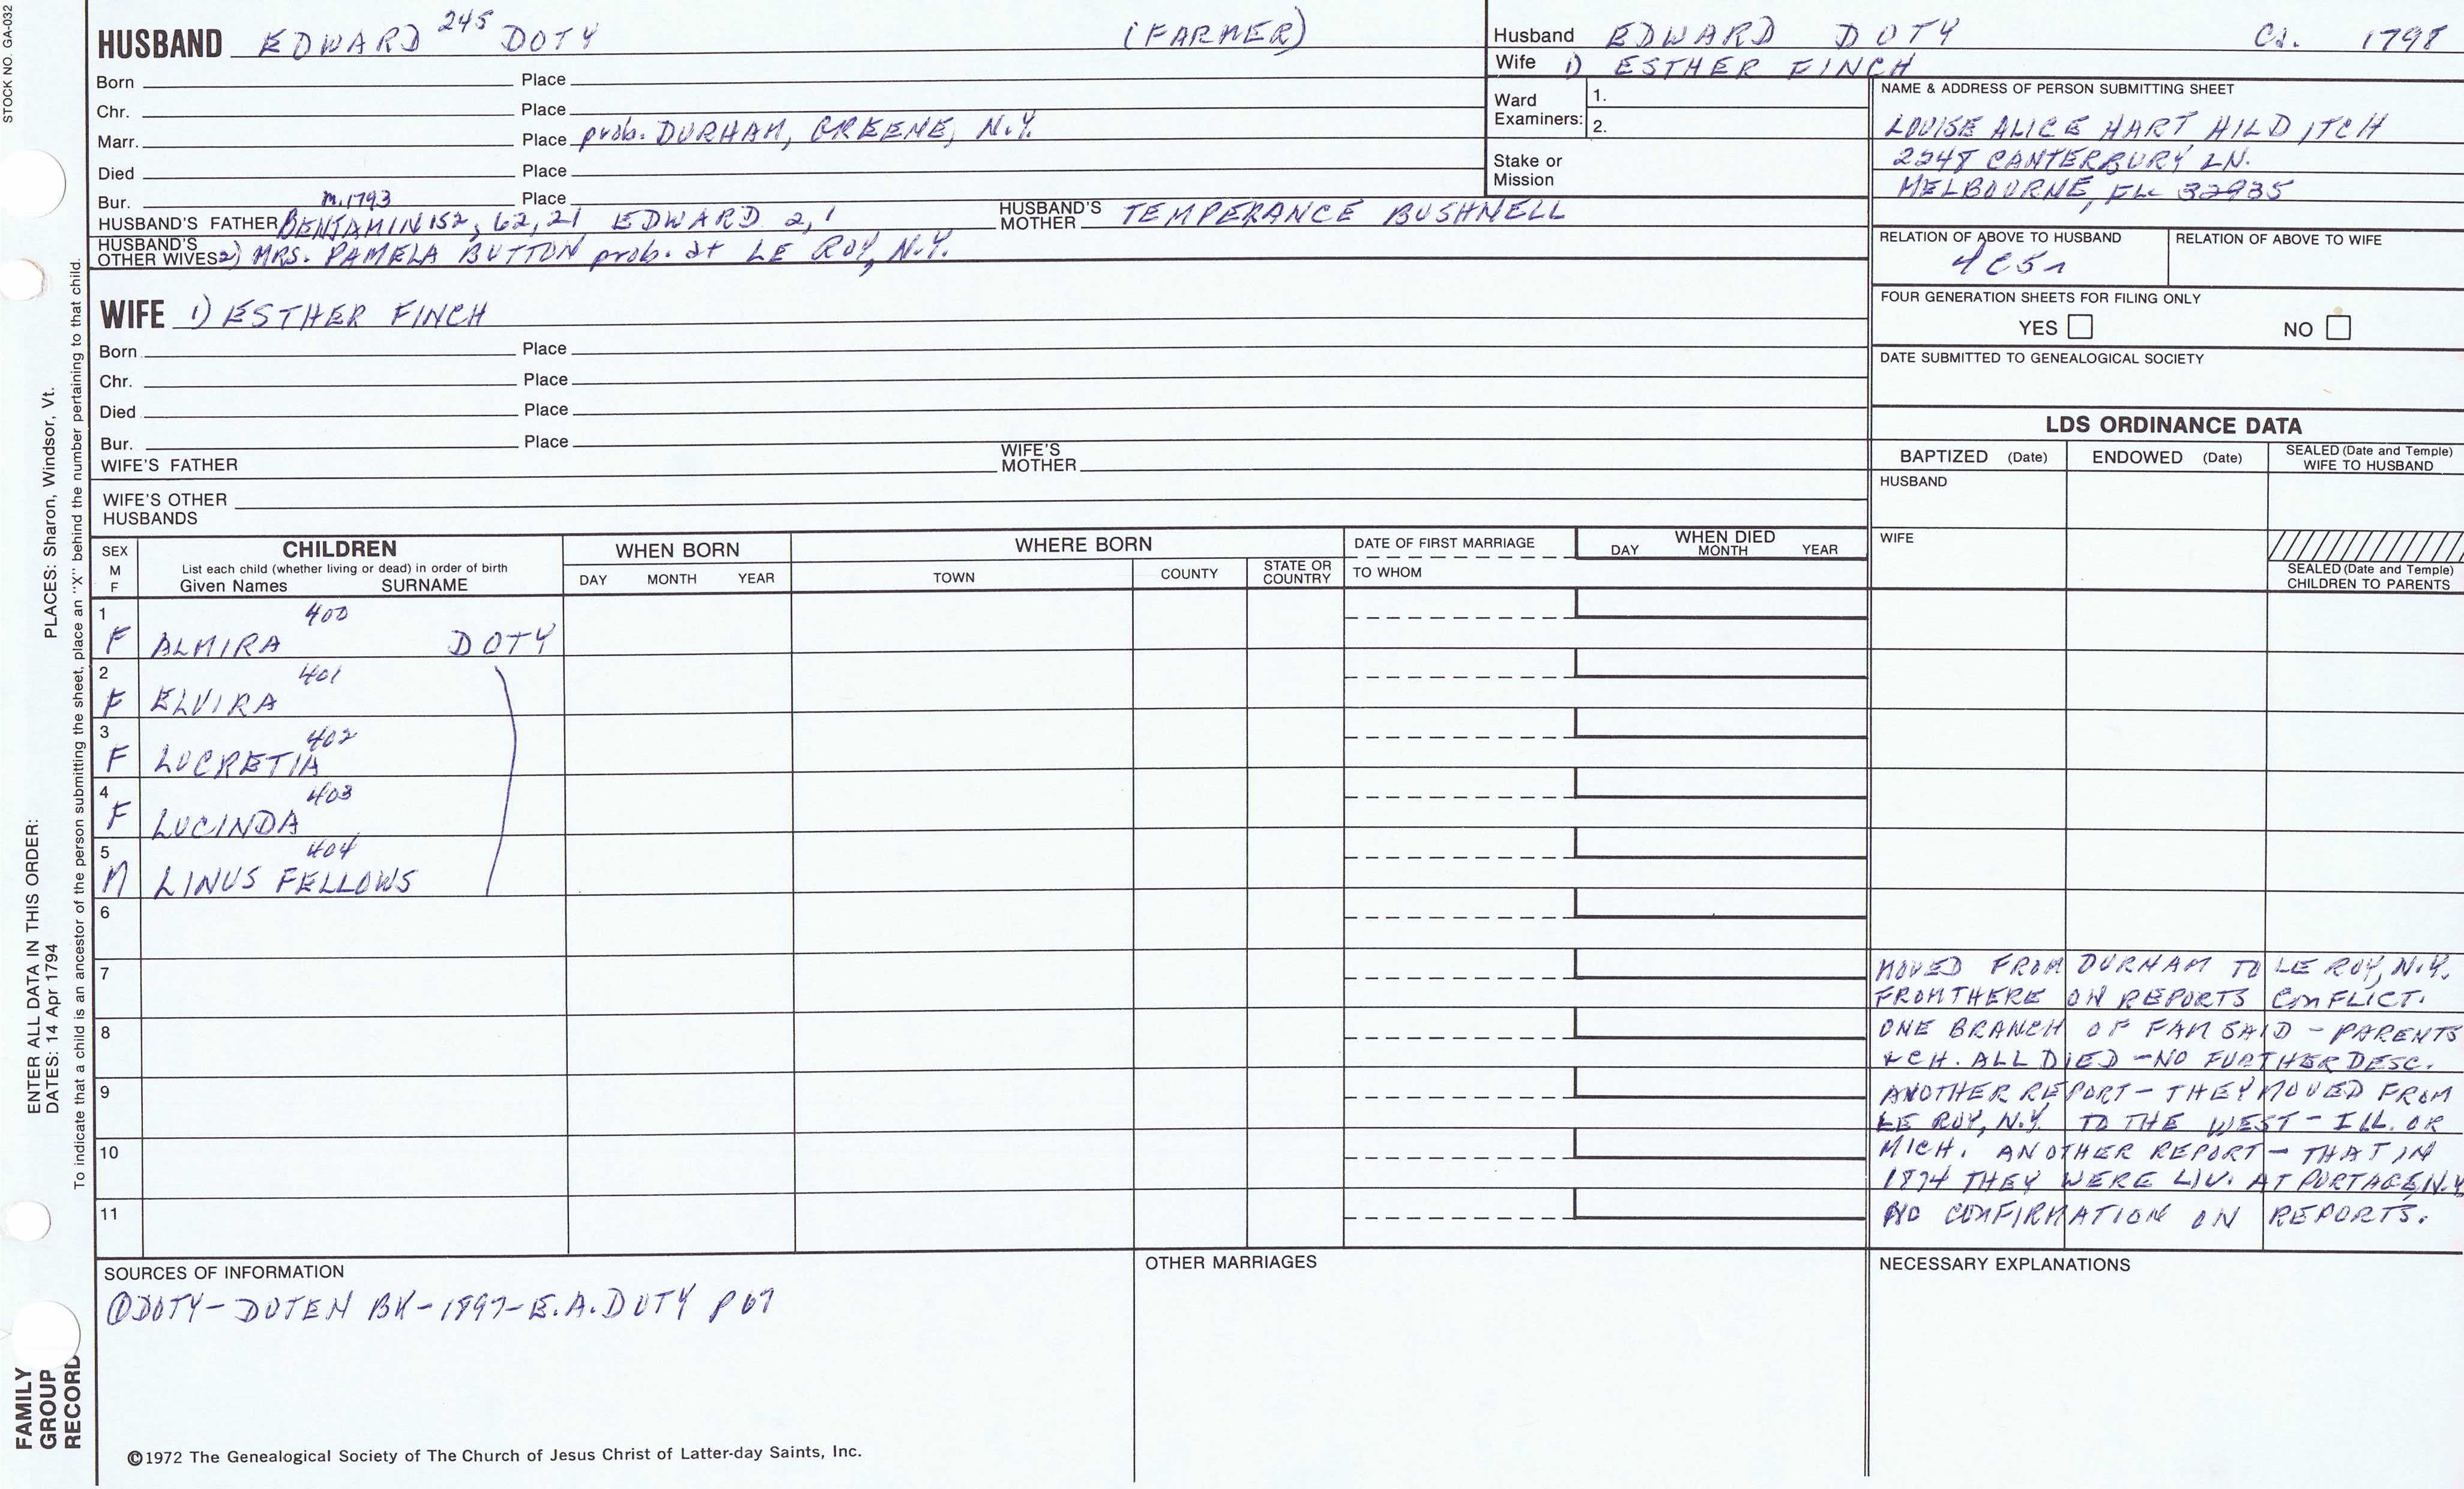 STOCK NO. GA-032
HUSBAND EDWARD 245 DOTY (FARMER)
Born Place
Chr. Place
Marr. Place prob. DURHAM, GREENE, N.Y.
Died Place
Bur. m.1793 Place
HUSBAND'S FATHER BENJAMIN 152, 62, 21 EDWARD 2, 1 HUSBAND'S MOTHER TEMPERANCE BUSHNELL
HUSBAND'S OTHER WIVES 2) MRS. PAMELA BUTTON prob. at LE ROY, N.Y.
WIFE 1) ESTHER FINCH
Born Place
Chr. Place
Died Place
Bur. Place
WIFE'S FATHER WIFE'S MOTHER
WIFE'S OTHER HUSBANDS
Husband EDWARD DOTY Ca. 1798
Wife 1) ESTHER FINCH
Ward Examiners: 1.
2.
Stake or Mission
NAME & ADDRESS OF PERSON SUBMITTING SHEET
LOUISE ALICE HART HILDITCH
2248 CANTERBURY LN.
MELBOURNE, FL 32935
RELATION OF ABOVE TO HUSBAND RELATION OF ABOVE TO WIFE
4C5r
FOUR GENERATION SHEETS FOR FILING ONLY
YES NO
DATE SUBMITTED TO GENEALOGICAL SOCIETY
LDS ORDINANCE DATA
BAPTIZED (Date) ENDOWED (Date) SEALED (Date and Temple) WIFE TO HUSBAND
HUSBAND
WIFE
SEALED (Date and Temple) CHILDREN TO PARENTS
SEX M F
CHILDREN
List each child (whether living or dead) in order of birth
Given Names SURNAME
WHEN BORN
DAY MONTH YEAR
WHERE BORN
TOWN COUNTY STATE OR COUNTRY
DATE OF FIRST MARRIAGE
TO WHOM
WHEN DIED
DAY MONTH YEAR
1 F ALMIRA 400 DOTY
2 F ELVIRA 401
3 F LUCRETIA 402
4 F LUCINDA 403
5 M LINUS FELLOWS 404
6
7
8
9
10
11
MOVED FROM DURHAM TO LE ROY, N.Y.
FROM THERE ON REPORTS CONFLICT.
ONE BRANCH OF FAM SAID - PARENTS
& CH. ALL DIED - NO FURTHER DESC.
ANOTHER REPORT - THEY MOVED FROM
LE ROY, N.Y. TO THE WEST - ILL. OR
MICH. ANOTHER REPORT - THAT IN
1874 THEY WERE LIV. AT PORTAGE, N.Y.
NO CONFIRMATION ON REPORTS.
SOURCES OF INFORMATION
① DOTY - DOTEN BK - 1897 - E.A. DOTY P 67
OTHER MARRIAGES
NECESSARY EXPLANATIONS
©1972 The Genealogical Society of The Church of Jesus Christ of Latter-day Saints, Inc.
FAMILY GROUP RECORD
ENTER ALL DATA IN THIS ORDER:
DATES: 14 Apr 1794 PLACES: Sharon, Windsor, Vt.
To indicate that a child is an ancestor of the person submitting the sheet, place an "X" behind the number pertaining to that child.